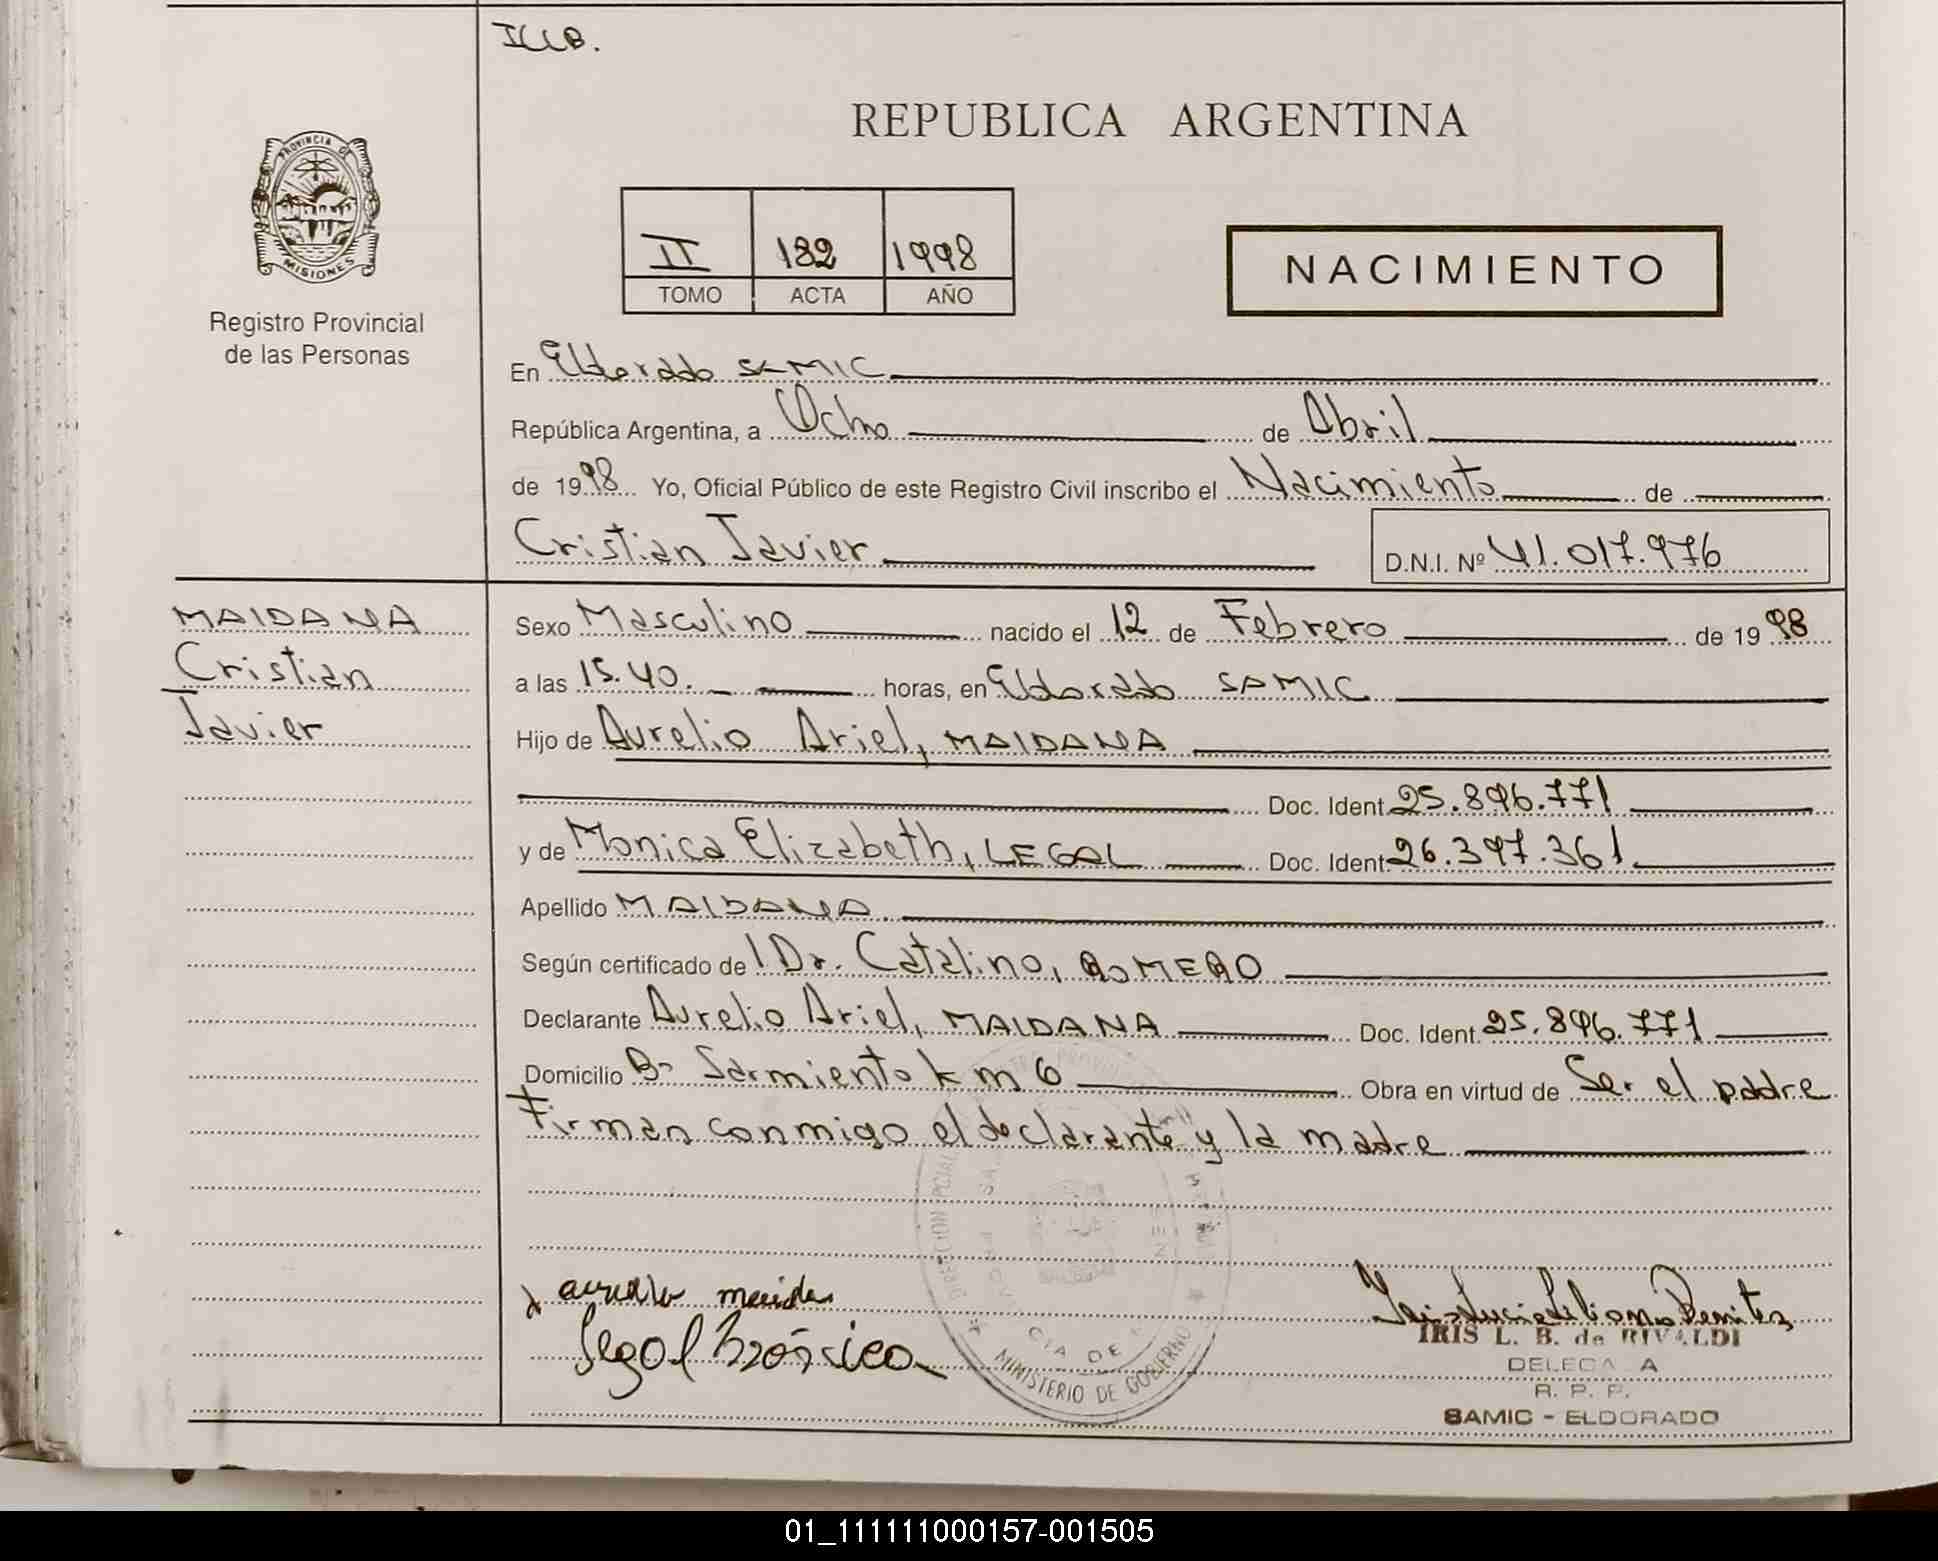 ILLB.
REPUBLICA ARGENTINA
PROVINCIA DE
MISIONES
Registro Provincial
de las Personas
II 182 1998
TOMO ACTA AÑO
NACIMIENTO
En Eldorado SAMIC
República Argentina, a Ocho de Abril
de 1998 Yo, Oficial Público de este Registro Civil inscribo el Nacimiento de
Cristian Javier D.N.I. Nº 41.017.976
MAIDANA
Cristian
Javier
Sexo Masculino nacido el 12 de Febrero de 1998
a las 15.40. horas, en Eldorado SAMIC
Hijo de Aurelio Ariel, MAIDANA
Doc. Ident. 25.896.771
y de Monica Elizabeth, LEGAL Doc. Ident. 26.397.361
Apellido MAIDANA
Según certificado de l Dr. Catalino, ROMERO
Declarante Aurelio Ariel, MAIDANA Doc. Ident. 25.896.771
Domicilio Bº Sarmiento km 6 Obra en virtud de Ser el padre
Firman conmigo el declarante y la madre
DIRECCION
MINISTERIO DE GOBIERNO
IRIS L. B. de RIVALDI
DELEGADA
R. P. P.
SAMIC - ELDORADO
01_111111000157-001505